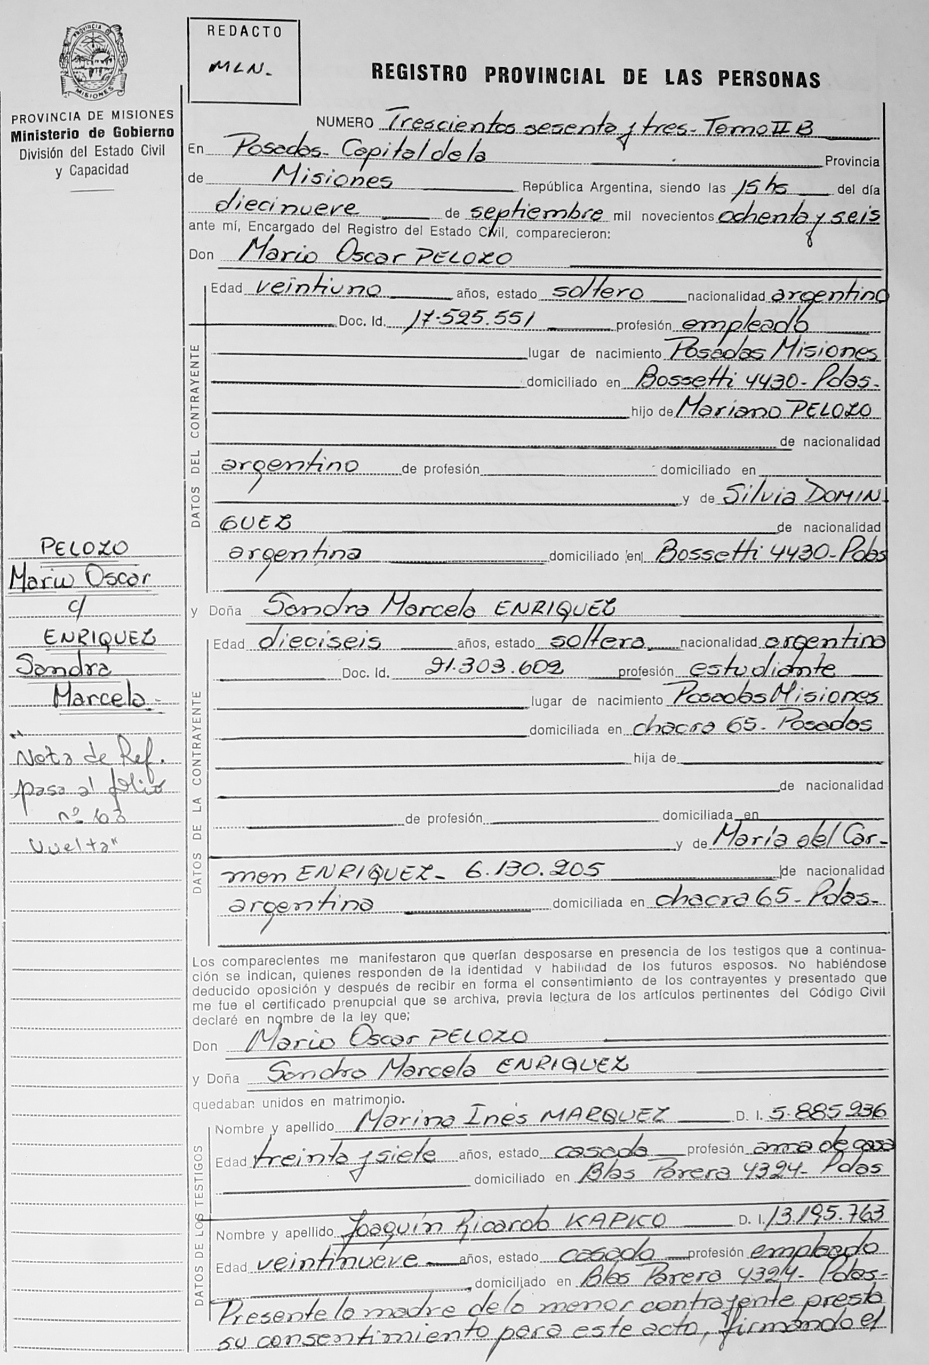 PROVINCIA DE MISIONES
PROVINCIA DE MISIONES
Ministerio de Gobierno
División del Estado Civil
y Capacidad
REDACTO
MLN.
REGISTRO PROVINCIAL DE LAS PERSONAS
NUMERO Trescientos sesenta y tres- Tomo II B
En Posadas- Capital de la Provincia
de Misiones República Argentina, siendo las 15 hs del día
diecinueve de septiembre mil novecientos ochenta y seis
ante mí, Encargado del Registro del Estado Civil, comparecieron:
Don Mario Oscar PELOZO
DATOS DEL CONTRAYENTE
Edad veintiuno años, estado soltero nacionalidad argentino
Doc. Id. 17.525.551 profesión empleado
lugar de nacimiento Posadas Misiones
domiciliado en Bossetti 4430- Pdas-
hijo de Mariano PELOZO
de nacionalidad
argentino de profesión domiciliado en
y de Silvia DOMIN
GUEZ de nacionalidad
argentina domiciliado en Bossetti 4430- Pdas
y Doña Sandra Marcela ENRIQUEZ
DATOS DE LA CONTRAYENTE
Edad dieciseis años, estado soltera nacionalidad argentina
Doc. Id. 21.303.602 profesión estudiante
lugar de nacimiento Posadas Misiones
domiciliada en chacra 65- Posadas
hija de
de nacionalidad
de profesión domiciliada en
y de María del Car-
men ENRIQUEZ- 6.130.205 de nacionalidad
argentina domiciliada en chacra 65- Pdas-
PELOZO
Mario Oscar
c/
ENRIQUEZ
Sandra
Marcela-
"Nota de Ref.
pasa al folio
nº 63
Vuelta"
Los comparecientes me manifestaron que querían desposarse en presencia de los testigos que a continua-
ción se indican, quienes responden de la identidad y habilidad de los futuros esposos. No habiéndose
deducido oposición y después de recibir en forma el consentimiento de los contrayentes y presentado que
me fue el certificado prenupcial que se archiva, previa lectura de los artículos pertinentes del Código Civil
declaré en nombre de la ley que;
Don Mario Oscar PELOZO
y Doña Sandra Marcela ENRIQUEZ
quedaban unidos en matrimonio.
DATOS DE LOS TESTIGOS
Nombre y apellido Marina Inés MARQUEZ D. I. 5.885.936
Edad treinta y siete años, estado casada profesión ama de casa
domiciliado en Blas Parera 4324- Pdas
Nombre y apellido Joaquín Ricardo KAPICO D. I. 13.195.763
Edad veintinueve años, estado casado profesión empleado
domiciliado en Blas Parera 4324- Pdas-
Presente la madre de la menor contrayente presta
su consentimiento para este acto, firmando el